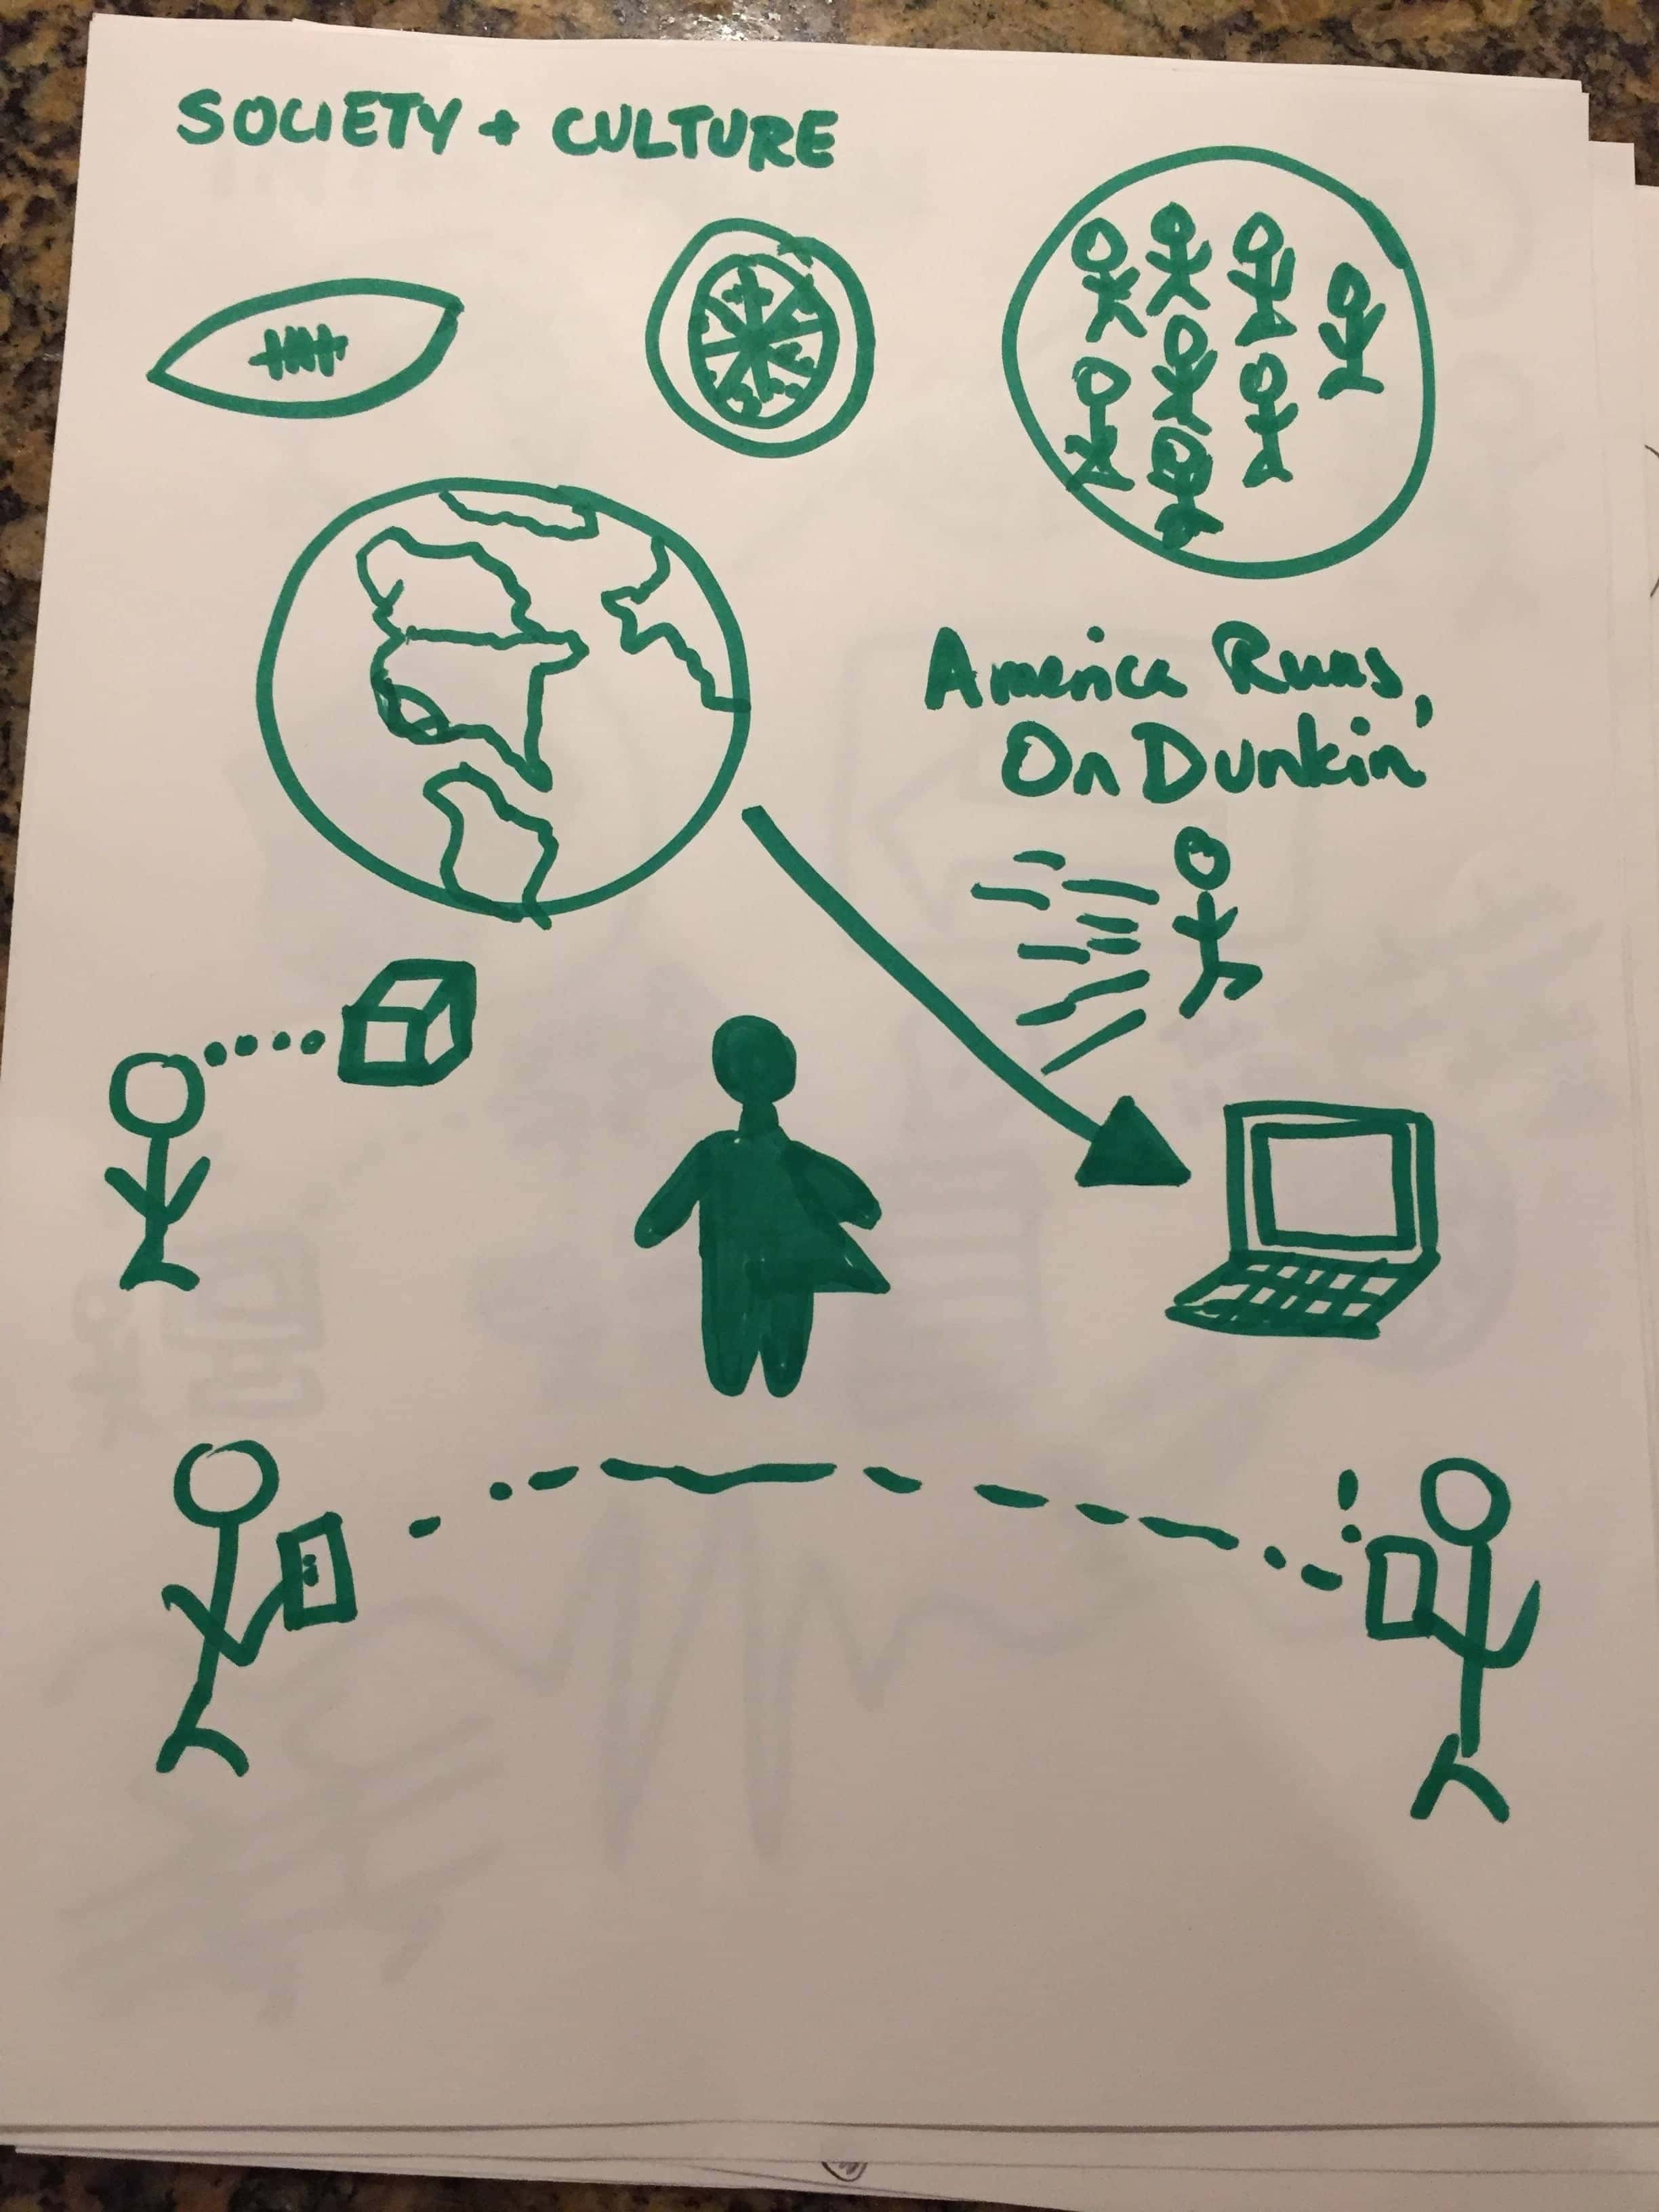 SOCIETY + CULTURE
America Runs
On Dunkin'